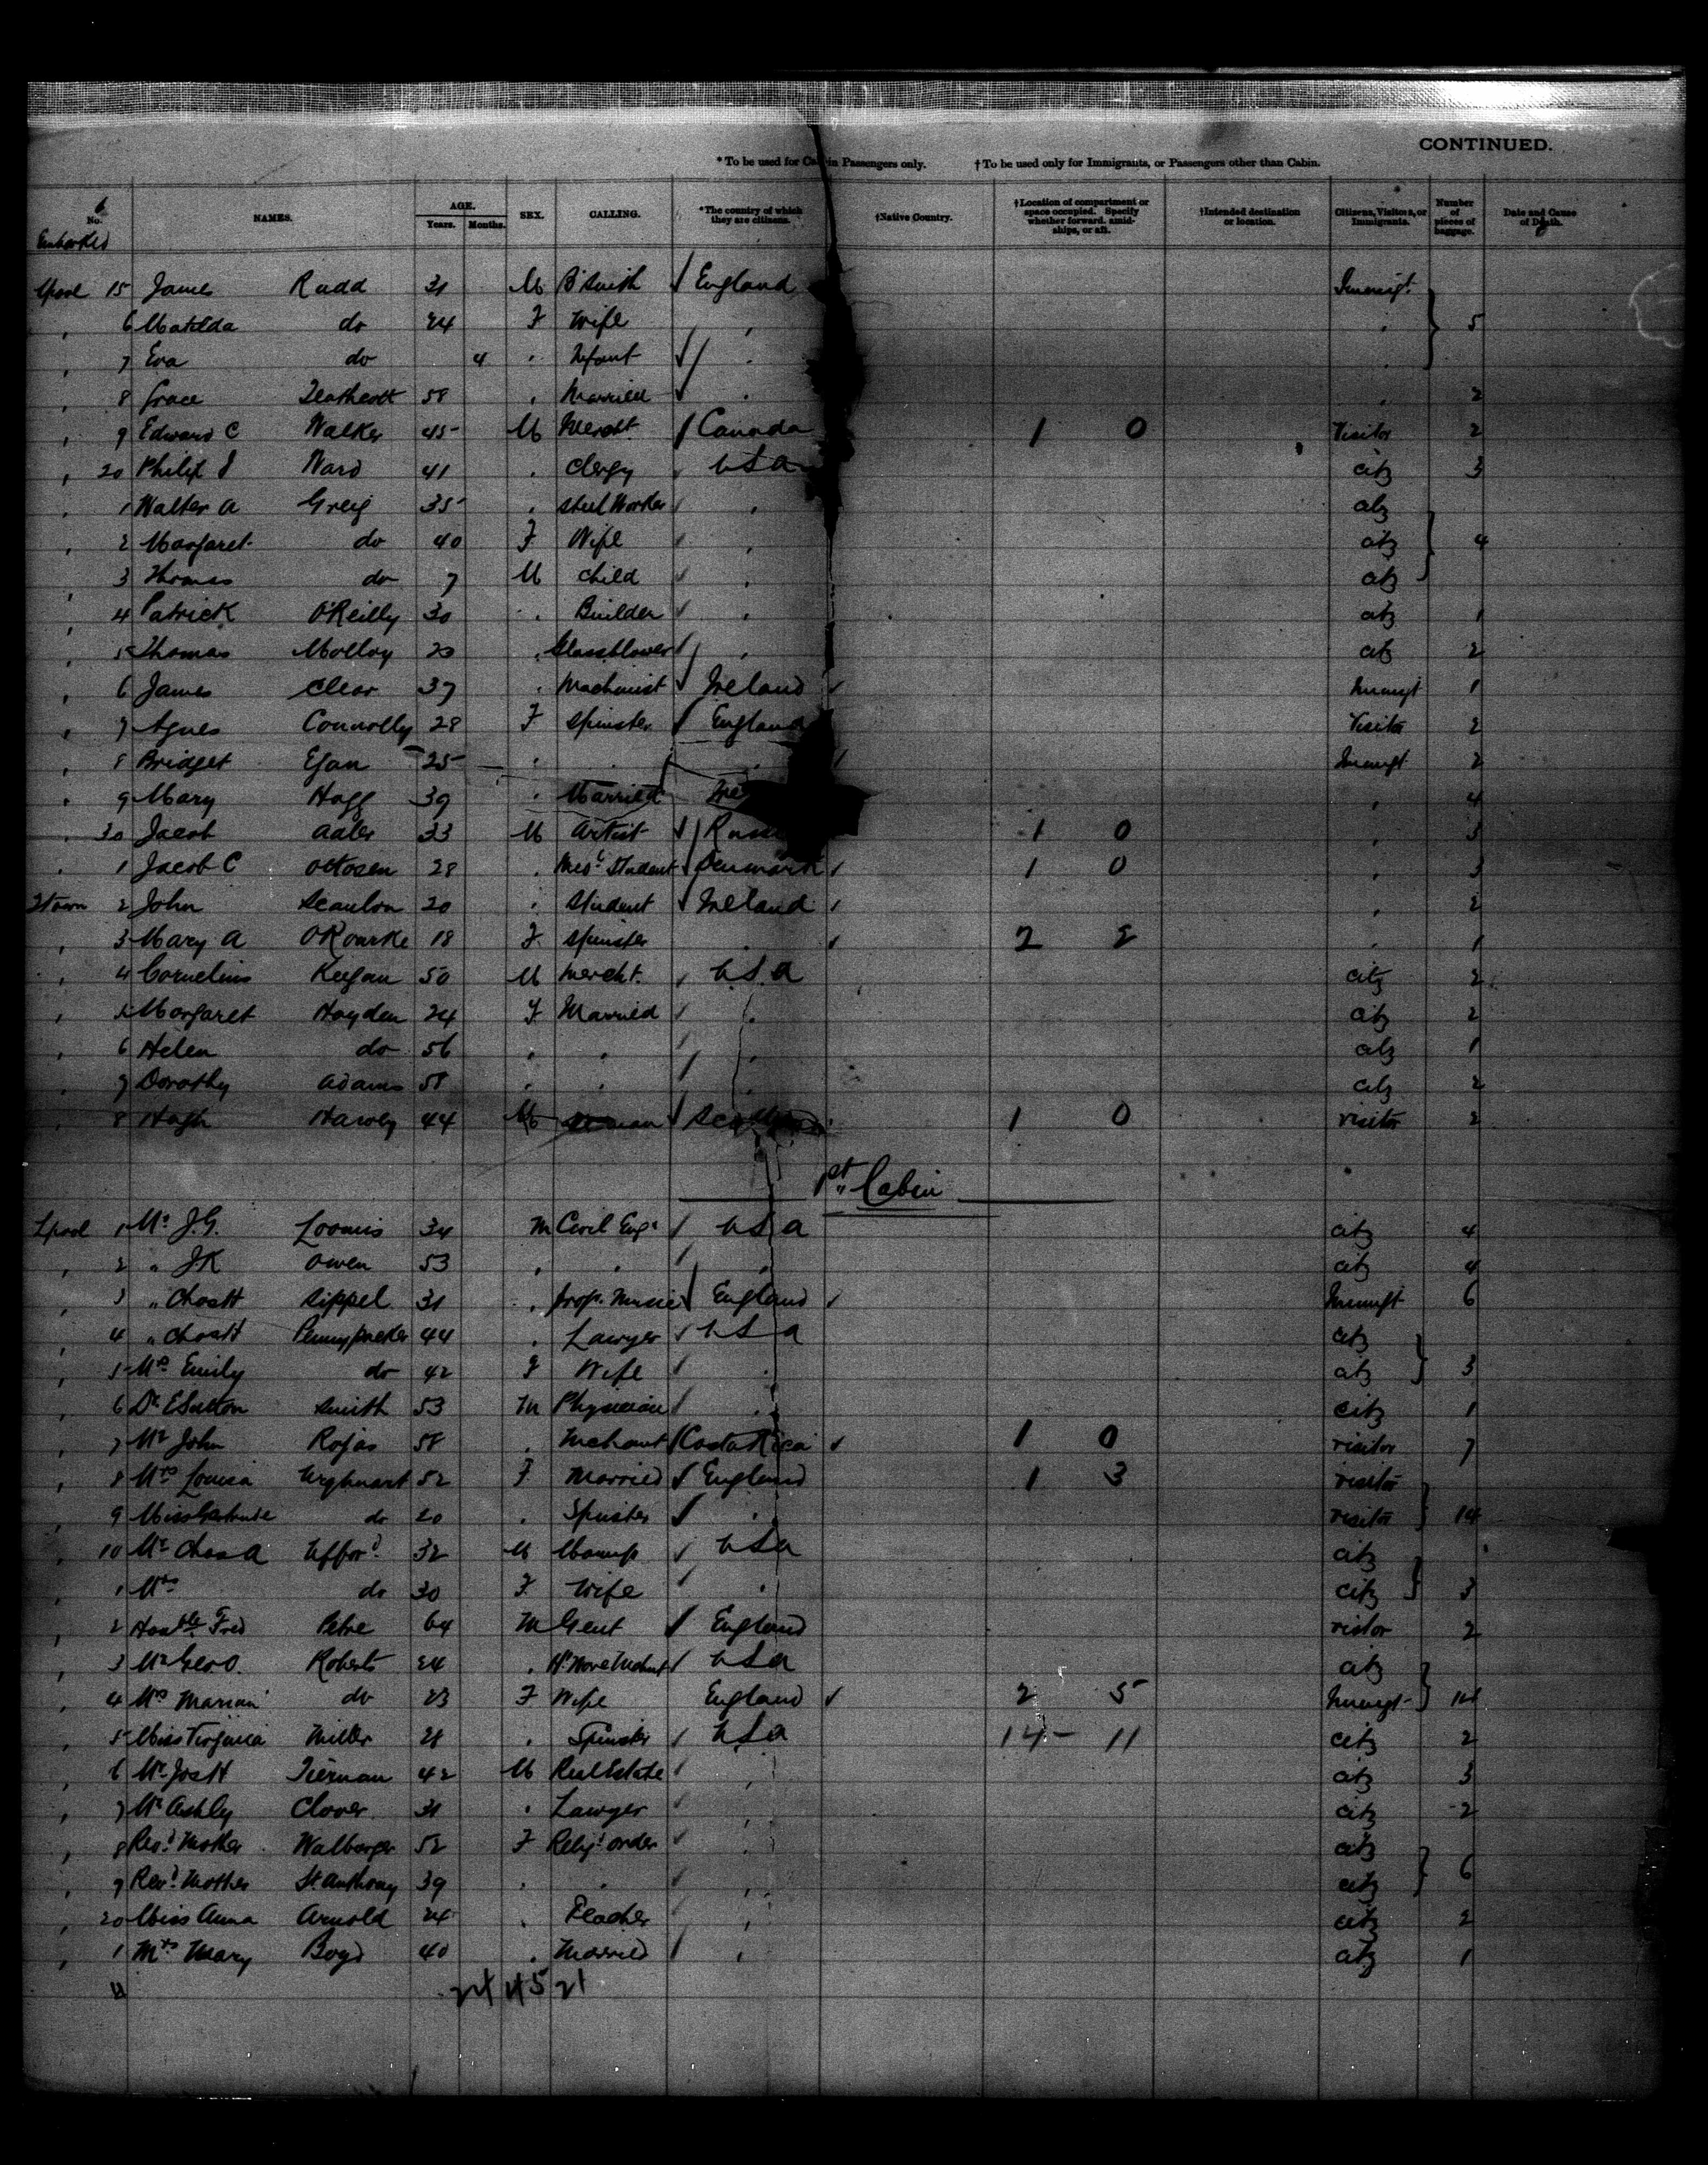 CONTINUED.
* To be used for Cabin Passengers only. † To be used only for Immigrants, or Passengers other than Cabin.
No. NAMES. AGE. Years. Months. SEX. CALLING. *The country of which they are citizens. †Native Country. †Location of compartment or space occupied. Specify whether forward, amidships, or aft. †Intended destination or location. Citizens, Visitors, or Immigrants. Number of pieces of baggage. Date and Cause of Death.
Embarked
Lpool 15 James Rudd 31 M B'Smith England Immigt.
" 6 Matilda do 24 F Wife " " 5
" 7 Eva do 4 " Infant " "
" 8 Grace 58 " Married " " 2
" 9 Edward C Walker 45 M Mercht. Canada 1 0 Visitor 2
" 20 Philip J Ward 41 " Clergy USA citz 3
" 1 Walter A Greig 35 " Steel Worker " citz
" 2 Margaret do 40 F Wife " citz 4
" 3 Thomas do 7 M Child " citz
" 4 Patrick O'Reilly 30 " Builder " citz 1
" 5 Thomas Molloy 20 " Glassblower " citz 2
" 6 James Clear 37 " Machinist Ireland Immigt 1
" 7 Agnes Connolly 28 F Spinster England Visitor 2
" 8 Bridget Egan 25 " " " Immigt 2
" 9 Mary Hagg 39 " Married Ire " 4
" 30 Jacob Adler 33 M Artist Russ 1 0 " 3
" 1 Jacob C Ottosen 28 " Medl Student Denmark 1 0 " 3
Qtown 2 John Scanlon 20 " Student Ireland " 2
" 3 Mary A O'Rourke 18 F Spinster " 2 2 " 1
" 4 Cornelius Keegan 50 M Mercht. U.S.A citz 2
" 5 Margaret Hayden 24 F Married " citz 2
" 6 Helen do 56 " " " citz 1
" 7 Dorothy Adams 58 " " " citz 2
" 8 Hugh 44 M 1 0 visitor 2
1st Cabin
Lpool 1 Mr J.G. Loomis 34 M Civil Engr USA citz 4
" 2 " J K Owen 53 " " " citz 4
" 3 " Chas H Sippel 31 " Prof. Music England Immigt 6
" 4 " Chas H Pennypacker 44 " Lawyer USA citz
" 5 Mrs Emily do 42 F Wife " citz 3
" 6 Dr E Sutton Smith 53 M Physician " citz 1
" 7 Mr John Rojas 58 " Mchant Costa Rica 1 0 visitor 7
" 8 Mrs Louisa Urghuart 52 F Married England 1 3 visitor
" 9 Miss Gertrude do 20 " Spinster " visitor 14
" 10 Mr Chas A Ufford 32 M Manuf USA citz
" 1 Mrs do 30 F Wife " citz 3
" 2 Honble Fred Petre 64 M Gent England visitor 2
" 3 Mr Geo O. Roberts 24 " USA citz
" 4 Mrs Marian do 23 F Wife England 2 5 Immigt 14
" 5 Miss Virginia Miller 28 " Spinster USA 14 - 11 citz 2
" 6 Mr Jos H Tiernan 42 M Real Estate " citz 3
" 7 Mr Ashley Clover 31 " Lawyer " citz 2
" 8 Revd Mother Walburga 52 F Relig. order " citz
" 9 Revd Mother St Anthony 39 " " " citz 6
" 20 Miss Anna Arnold 24 " Teacher " citz 2
" 1 Mrs Mary Boyd 40 " Married " citz 1
24 45 21